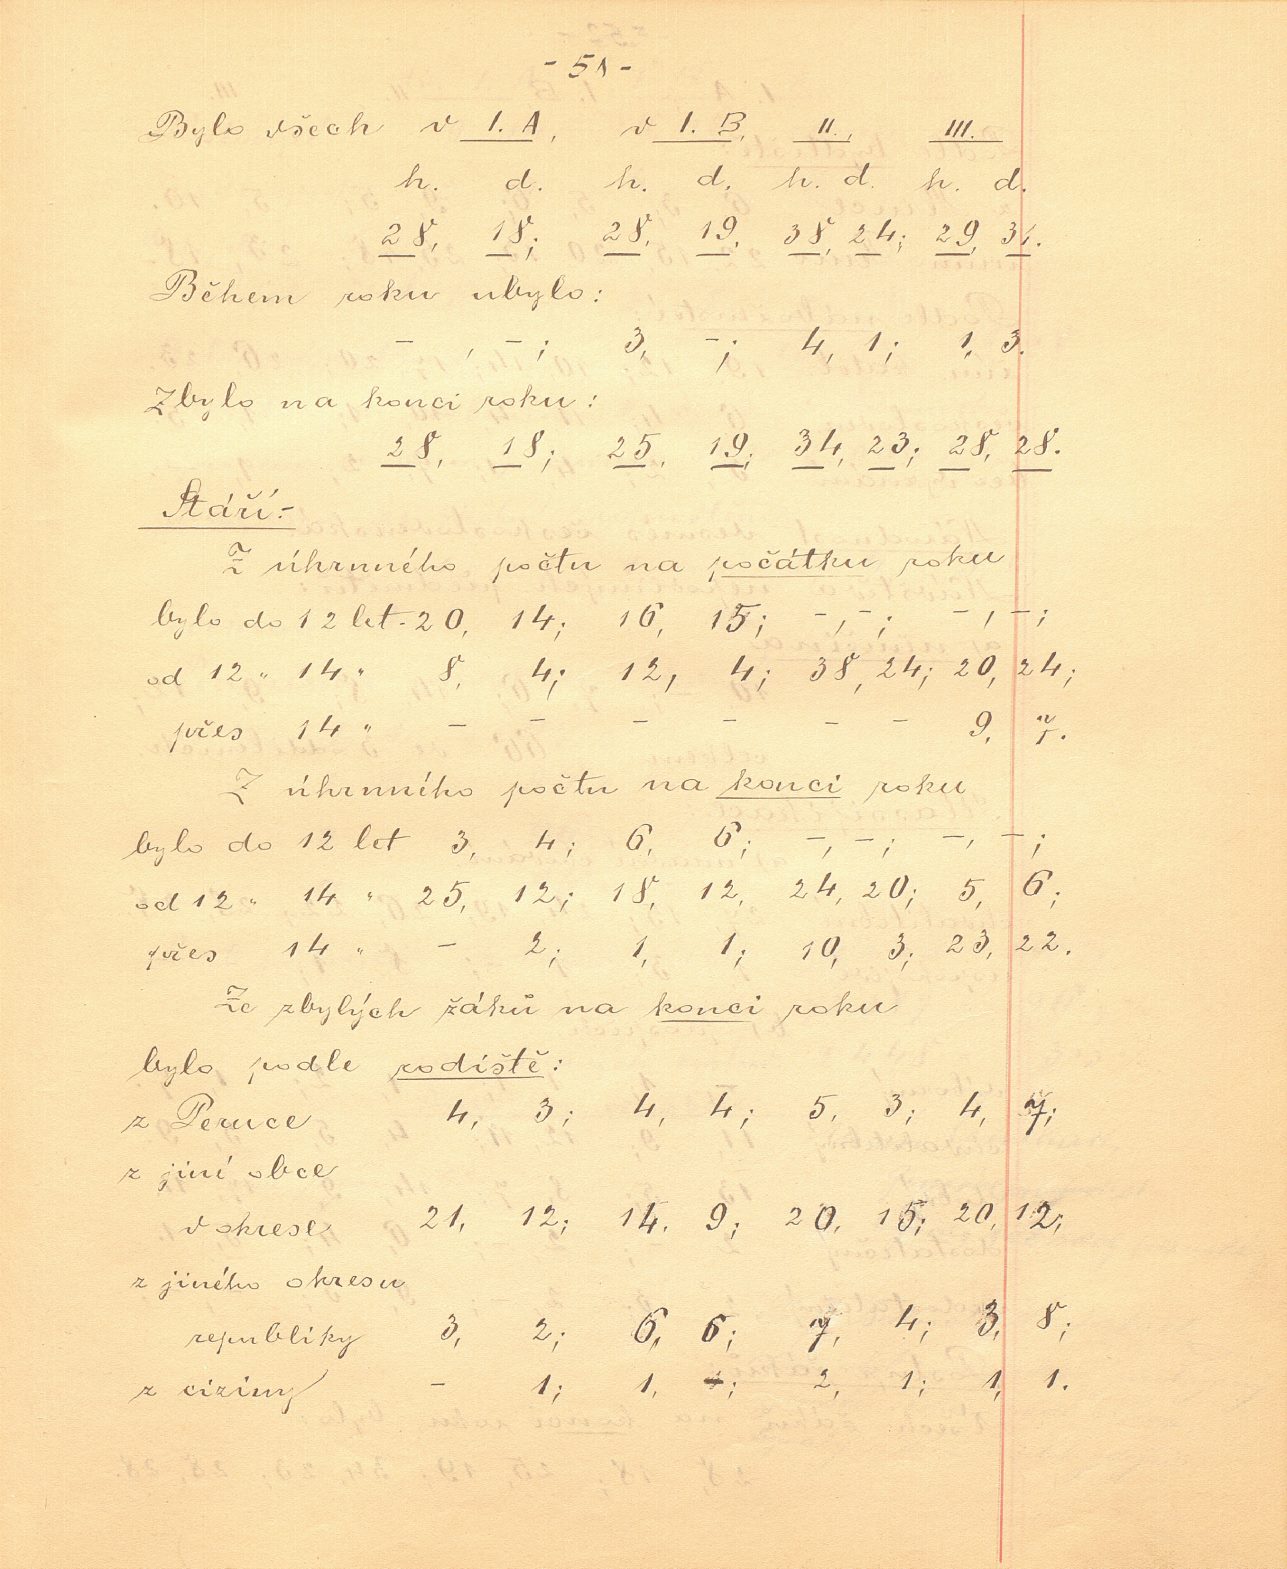 - 51 -
Bylo všech v I. A, v I. B, II., III.
h. d. h. d. h. d. h. d.
28, 18; 28, 19, 38, 24; 29, 31.
Během roku ubylo:
- , - ; 3, -; 4, 1; 1, 3.
Zbylo na konci roku:
28, 18; 25, 19; 34, 23; 28, 28.
Stáří:-
Z úhrnného počtu na počátku roku
bylo do 12 let - 20, 14; 16, 15; -, -; -, -;
od 12 " 14 " 8, 4; 12, 4; 38, 24; 20, 24;
přes 14 " - - - - - - 9, 7.
Z úhrnného počtu na konci roku
bylo do 12 let 3, 4; 6, 6; -, -; -, -;
od 12 " 14 " 25, 12; 18, 12, 24, 20; 5, 6;
přes 14 " - 2; 1, 1; 10, 3; 23, 22.
Ze zbylých žáků na konci roku
bylo podle rodiště:
z Peruce 4, 3; 4, 4; 5, 3; 4, 7;
z jiní obce
v okrese 21, 12; 14, 9; 20, 15; 20, 12;
z jiného okresu
republiky 3, 2; 6, 6; 7, 4; 3, 8;
z ciziny - 1; 1, ; 2, 1; 1, 1.